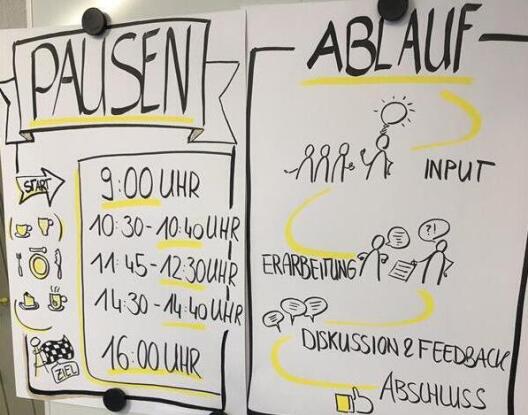 PAUSEN
START
9:00 UHR
10:30-10:40 UHR
11:45-12:30 UHR
14:30-14:40 UHR
16:00 UHR
ZIEL
ABLAUF
INPUT
?!
ERARBEITUNG
DISKUSSION & FEEDBACK
ABSCHLUSS